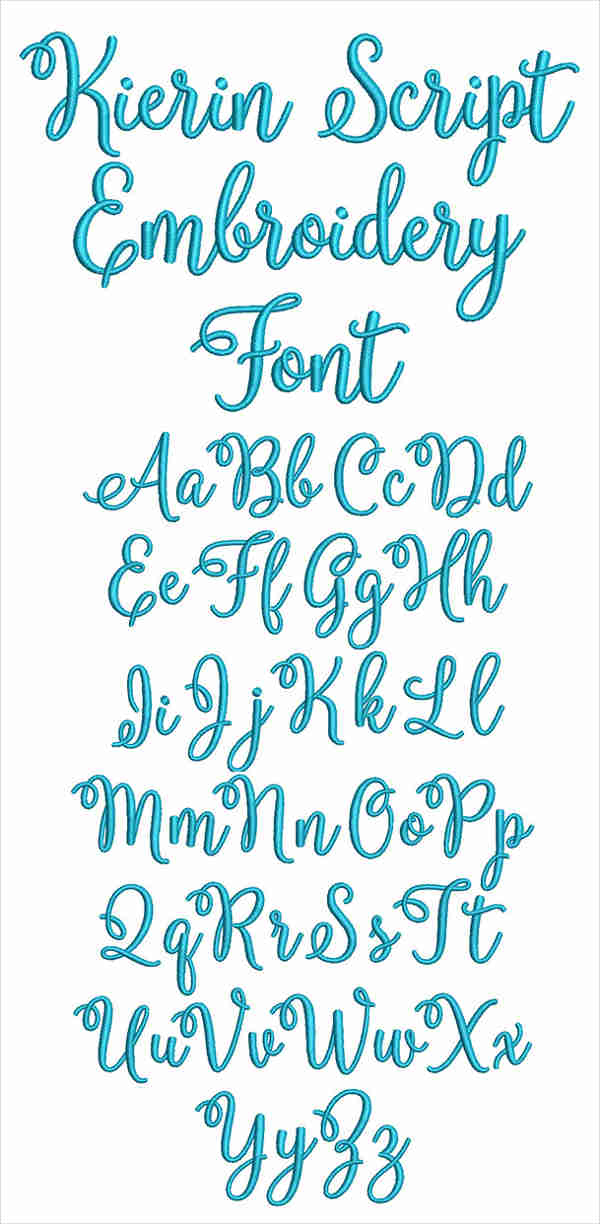 Kierin Script
Embroidery
Font
Aa Bb Cc Dd
Ee Ff Gg Hh
Ii Jj Kk Ll
Mm Nn Oo Pp
Qq Rr Ss Tt
Uu Vv Ww Xx
Yy Zz